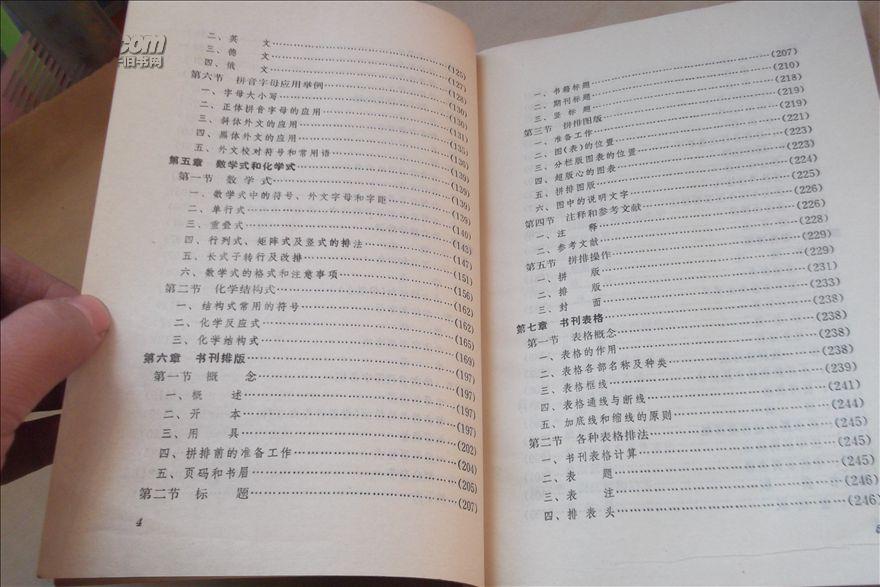 二、英　文……(125)
三、德　文……(127)
四、俄　文……(128)
第六节　拼音字母应用举例……(130)
一、字母大小写……(130)
二、正体拼音字母的应用……(131)
三、斜体外文的应用……(135)
四、黑体外文的应用……(136)
五、外文校对符号和常用语……(139)
第五章　数学式和化学式……(139)
第一节　数学式……(139)
一、数学式中的符号、外文字母和字距……(139)
二、单行式……(140)
三、重叠式……(143)
四、行列式、矩阵式及竖式的排法……(147)
五、长式子转行及改排……(151)
六、数学式的格式和注意事项……(156)
第二节　化学结构式……(162)
一、结构式常用的符号……(162)
二、化学反应式……(165)
三、化学结构式……(169)
第六章　书刊排版……(197)
第一节　概　念……(197)
一、概　述……(197)
二、开　本……(197)
三、用　具……(202)
四、拼排前的准备工作……(204)
五、页码和书眉……(205)
第二节　标　题……(207)
4
一、书籍标题……(207)
二、期刊标题……(210)
三、竖标题……(218)
第三节　拼排图版……(219)
一、准备工作……(219)
二、图(表)的位置……(221)
三、分栏版图表的位置……(223)
四、超版心的图表……(223)
五、拼排图版……(224)
六、图中的说明文字……(225)
第四节　注释和参考文献……(226)
一、注　释……(226)
二、参考文献……(228)
第五节　拼排操作……(229)
一、拼　版……(229)
二、排　版……(231)
三、封　面……(233)
第七章　书刊表格……(238)
第一节　表格概念……(238)
一、表格的作用……(238)
二、表格各部名称及种类……(238)
三、表格框线……(239)
四、表格通线与断线……(241)
五、加底线和缩线的原则……(244)
第二节　各种表格排法……(245)
一、书刊表格计算……(245)
二、表　题……(245)
三、表　注……(246)
四、排表头……(246)
.com
旧书网